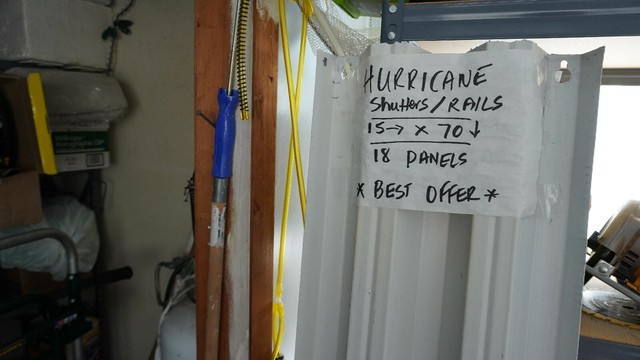 HURRICANE
Shutters/RAILS
15→ x 70↓
18 PANELS
* BEST OFFER *